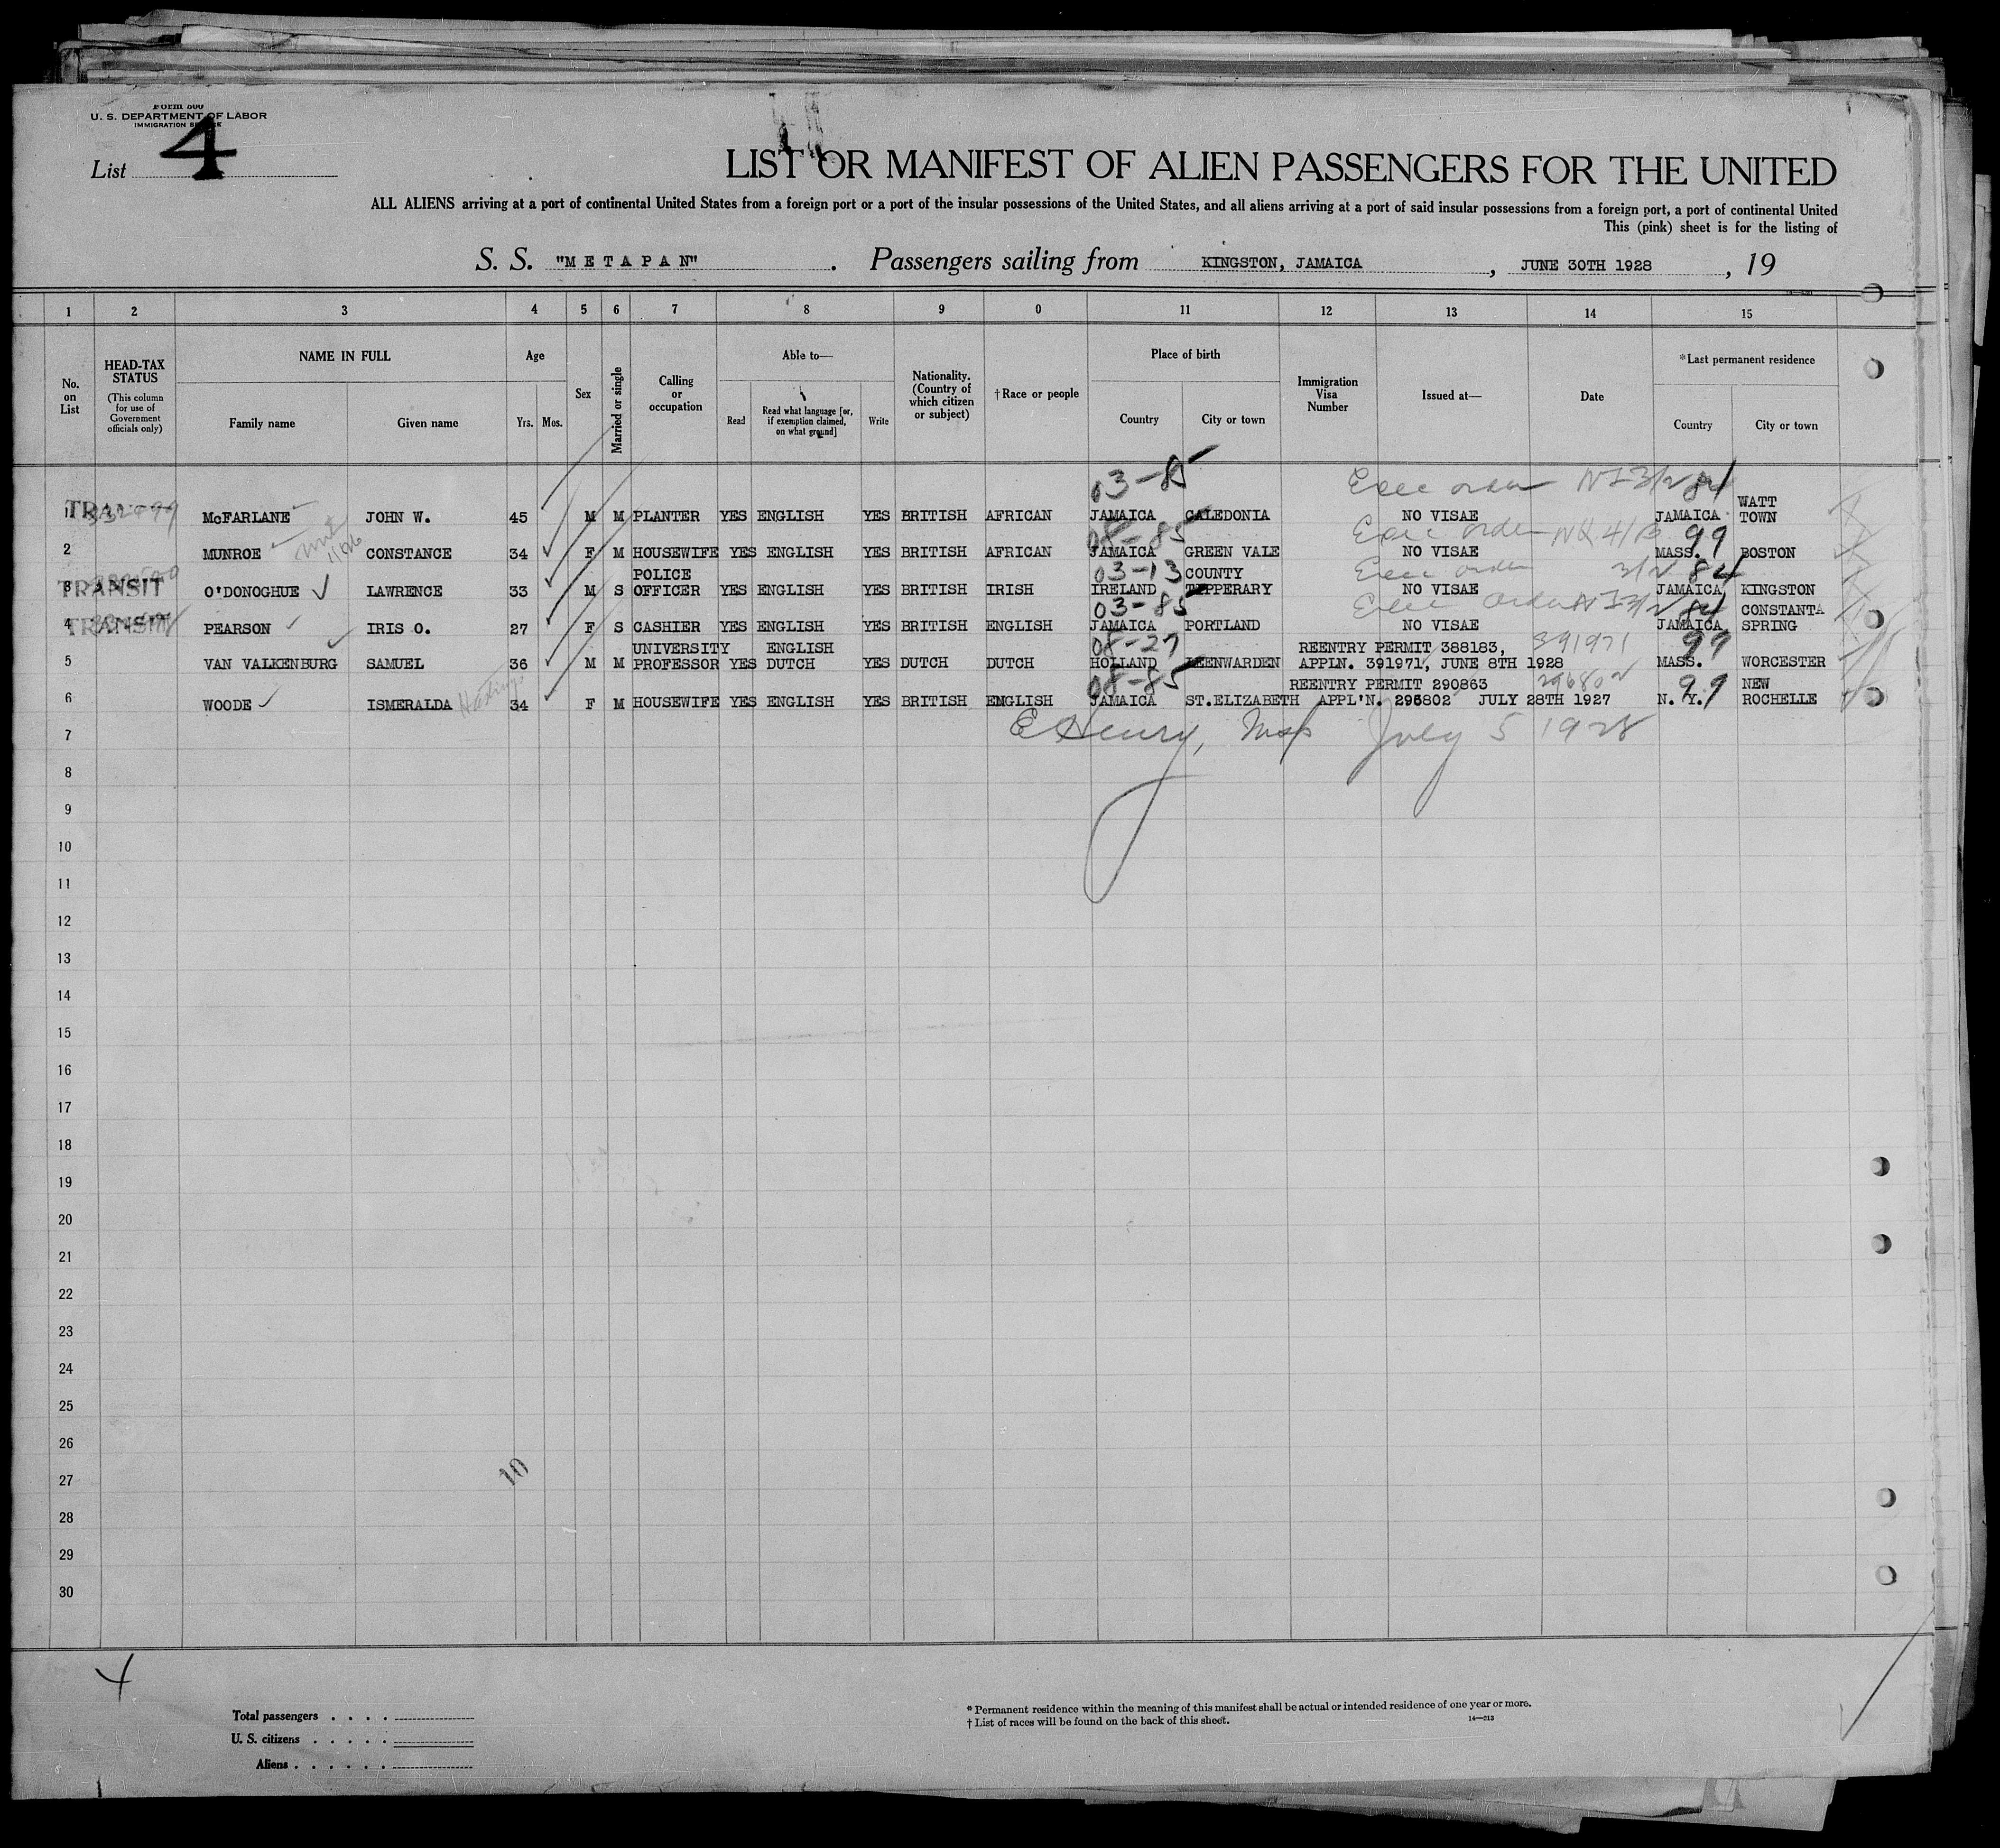 Form 500
U. S. DEPARTMENT OF LABOR
IMMIGRATION SERVICE
List 4
LIST OR MANIFEST OF ALIEN PASSENGERS FOR THE UNITED
ALL ALIENS arriving at a port of continental United States from a foreign port or a port of the insular possessions of the United States, and all aliens arriving at a port of said insular possessions from a foreign port, a port of continental United
This (pink) sheet is for the listing of
S. S. "METAPAN". Passengers sailing from KINGSTON, JAMAICA, JUNE 30TH 1928, 19
1 2 3 4 5 6 7 8 9 0 11 12 13 14 15
No. on List
HEAD-TAX STATUS (This column for use of Government officials only)
NAME IN FULL
Family name Given name
Age
Yrs. Mos.
Sex
Married or single
Calling or occupation
Able to—
Read Read what language [or, if exemption claimed, on what ground] Write
Nationality. (Country of which citizen or subject)
†Race or people
Place of birth
Country City or town
Immigration Visa Number
Issued at—
Date
*Last permanent residence
Country City or town
03-85 Exec order 84 WATT
1 McFARLANE JOHN W. 45 M M PLANTER YES ENGLISH YES BRITISH AFRICAN JAMAICA CALEDONIA NO VISAE JAMAICA TOWN
08-85 Exec order 99
2 MUNROE CONSTANCE 34 F M HOUSEWIFE YES ENGLISH YES BRITISH AFRICAN JAMAICA GREEN VALE NO VISAE MASS. BOSTON
POLICE 03-13 COUNTY Exec order 3/2 84
TRANSIT 3 O'DONOGHUE LAWRENCE 33 M S OFFICER YES ENGLISH YES BRITISH IRISH IRELAND TIPPERARY NO VISAE JAMAICA KINGSTON
03-85 Exec order 84 CONSTANTA
TRANSIT 4 PEARSON IRIS O. 27 F S CASHIER YES ENGLISH YES BRITISH ENGLISH JAMAICA PORTLAND NO VISAE JAMAICA SPRING
UNIVERSITY ENGLISH 08-27 REENTRY PERMIT 388183, 391971 99
5 VAN VALKENBURG SAMUEL 36 M M PROFESSOR YES DUTCH YES DUTCH DUTCH HOLLAND LEENWARDEN APPLN. 391971, JUNE 8TH 1928 MASS. WORCESTER
08-85 REENTRY PERMIT 290863 296802 99 NEW
6 WOODE Hastings ISMERALDA 34 F M HOUSEWIFE YES ENGLISH YES BRITISH ENGLISH JAMAICA ST.ELIZABETH APPL'N. 296802 JULY 28TH 1927 N. Y. ROCHELLE
7 E Henry, Insp July 5 1928
8
9
10
11
12
13
14
15
16
17
18
19
20
21
22
23
24
25
26
27
10
28
29
30
Total passengers . . . .
U. S. citizens . . . . .
Aliens . . . . . .
* Permanent residence within the meaning of this manifest shall be actual or intended residence of one year or more.
† List of races will be found on the back of this sheet.
14—213